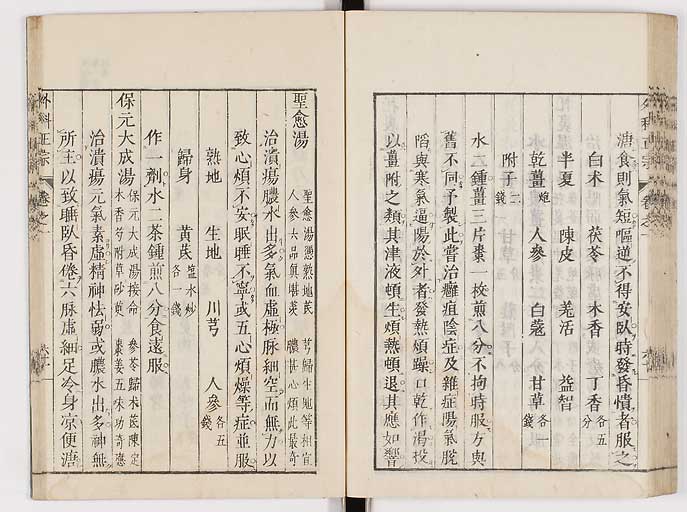 溏食則氣短嘔逆不得安臥時發昏憒者服之
白术 茯苓 木香 丁香 各五分
半夏 陳皮 羌活 益智
乾薑炮 人參 白蔻 甘草 各一錢
附子二錢
水二鍾薑三片棗一枚煎八分不拘時服方與
舊不同予製此嘗治癰疽陰症及雜症陽氣脫
陷與寒氣逼陽於外者發熱煩躁口乾作渴投
以薑附之類其津液頓生煩熱頓退其應如響
聖愈湯 聖愈湯慿熟地芪 芎歸生地等相宜
人參去品與堪羡 膿甚心煩此最奇
治潰瘍膿水出多氣血虛極脉細空而無力以
致心煩不安眠睡不寧或五心煩燥等症並服
熟地 生地 川芎 人參 各五錢
歸身 黃芪鹽水炒 各一錢
作一劑水二茶鍾煎八分食遠服
保元大成湯 保元大成湯接命 參苓歸术芪陳定
木香芍附草砂萸 棗姜五味功竒應
治潰瘍元氣素虛精神怯弱或膿水出多神無
所主以致睡臥昏倦六脉虛細足冷身凉便溏
外科正宗 卷之一